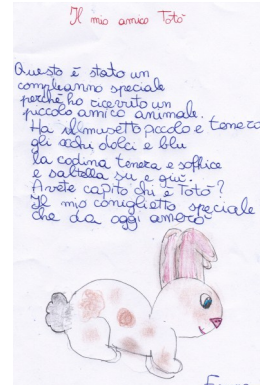 Il mio amico Totò
Questo è stato un
compleanno speciale
perché ho ricevuto un
piccolo amico animale.
Ha il musetto piccolo e tenero
gli occhi dolci e blu
la codina tenera e soffice
e saltella su e giù.
Avete capito chi è Totò?
Il mio coniglietto speciale
che da oggi amerò